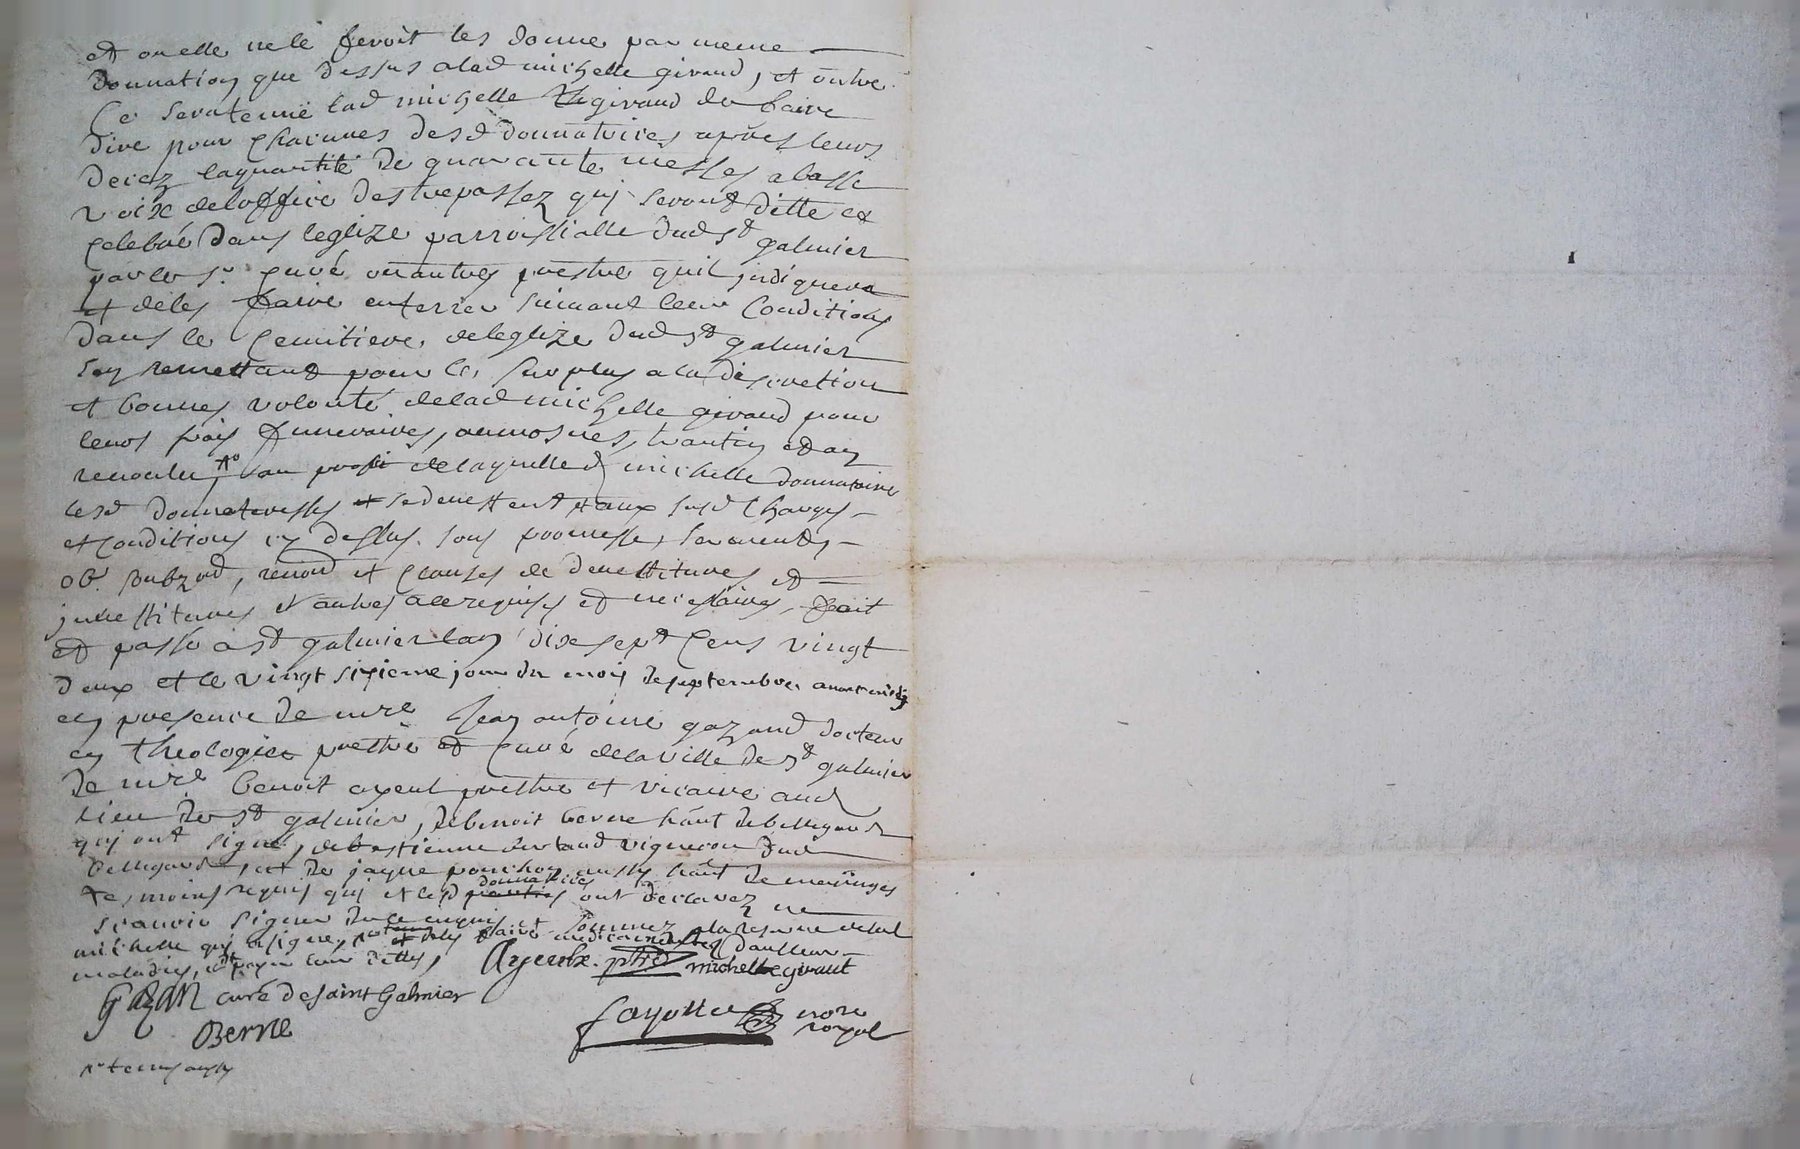 et ou elle ne le feroit les donne par meme
donnation que dessus a lad michelle giraud, et outre
ce sera tenue lad michelle giraud de faire
dire pour chacunes desd donnatrices apres leurs
decez la quantité de quarante messes a basse
voix de loffice des trepassez qui seront ditte et
celebré dans leglize parroissialle dud st galmier
par le sr curé ou autres prestre quil indiquera
et de les faire enterrer suivant leur conditions
dans le cemitiere de leglize dud st galmier
sen remettant pour le surplus a la discretion
et bonnes volonté de lad michelle giraud pour
leurs frais funeraires, aumosnes,
au profit de laquelle d michelle donnataire
lesd se demettent aux susd charges
et conditions cy dessus sous promesse, serments,
obl. renond et clauses de devettitures et
investitures et autres a ce requises et necessaires, fait
et passé a st galmier lan dixe sept cens vingt
deux et le vingt sixieme jour du mois de septembre avant midy
en presence de mre Jean antoine gazand docteur
en theologie prestre et curé de la ville de st galmier
de mre benoit ayeul prestre et vicaire aud
lieu de st galmier, de benoit berne hant de bellegarde
qui ont signé, de estienne vigneron dud
bellegarde, et de jaque hant de
tesmoins requis qui et lesd donnatrices ont declarez ne
scavoir signer de ce enquis et sommez a la reserve de lad
michelle qui a signe,
maladies, et payer leur dettes, Ayeulx. ptre michelle giraut
Gazan curé de saint Galmier
Berne fayolle nore royal